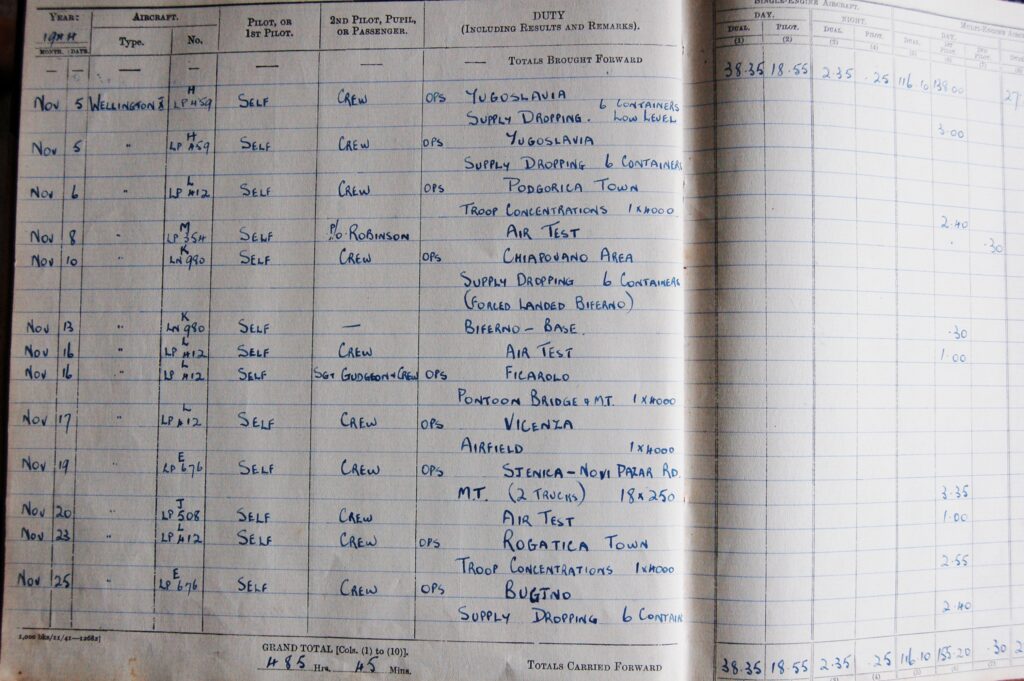 YEAR: AIRCRAFT. PILOT, OR 2ND PILOT, PUPIL, DUTY SINGLE-ENGINE AIRCRAFT.
1944 1ST PILOT. OR PASSENGER. (INCLUDING RESULTS AND REMARKS). DAY. NIGHT.
MONTH. DATE. Type. No. DUAL. PILOT. DUAL. PILOT. DUAL. DAY. 1ST PILOT
(1) (2) (3) (4) (5) (6) (7)
— — — — — — — TOTALS BROUGHT FORWARD 38.35 18.55 2.35 .25 116 10 138.00 27
H
NOV 5 WELLINGTON X LP 459 SELF CREW OPS YUGOSLAVIA 6 CONTAINERS
SUPPLY DROPPING. LOW LEVEL 3.00
H
NOV 5 " LP 459 SELF CREW OPS YUGOSLAVIA
SUPPLY DROPPING 6 CONTAINERS
L
NOV 6 " LP 412 SELF CREW OPS PODGORICA TOWN
TROOP CONCENTRATIONS 1 X 4000 2.40
M
NOV 8 " LP 354 SELF P/O. ROBINSON AIR TEST .30
K
NOV 10 " LN 980 SELF CREW OPS CHIAPOVANO AREA
SUPPLY DROPPING 6 CONTAINERS
(FORCED LANDED BIFERNO)
K
NOV 13 " LN 980 SELF — BIFERNO – BASE. .30
L
NOV 16 " LP 412 SELF CREW AIR TEST 1.00
L
NOV 16 " LP 412 SELF SGT GUDGEON & CREW OPS FICAROLO
PONTOON BRIDGE & MT. 1 X 4000
L
NOV 17 " LP 412 SELF CREW OPS VICENZA
AIRFIELD 1 X 4000
E
NOV 19 " LP 676 SELF CREW OPS SJENICA – NOVI PAZAR RD.
MT. (2 TRUCKS) 18 X 250 3.35
J
NOV 20 " LP 508 SELF CREW AIR TEST 1.00
L
NOV 23 " LP 412 SELF CREW OPS ROGATICA TOWN
TROOP CONCENTRATIONS 1 X 4000 2.55
E
NOV 25 " LP 676 SELF CREW OPS BUGINO
SUPPLY DROPPING 6 CONTAIN 2.40
GRAND TOTAL [Cols. (1) to (10)].
485 Hrs. 45 Mins. TOTALS CARRIED FORWARD 38.35 18.55 2.35 .25 116 10 155.20 .30 2